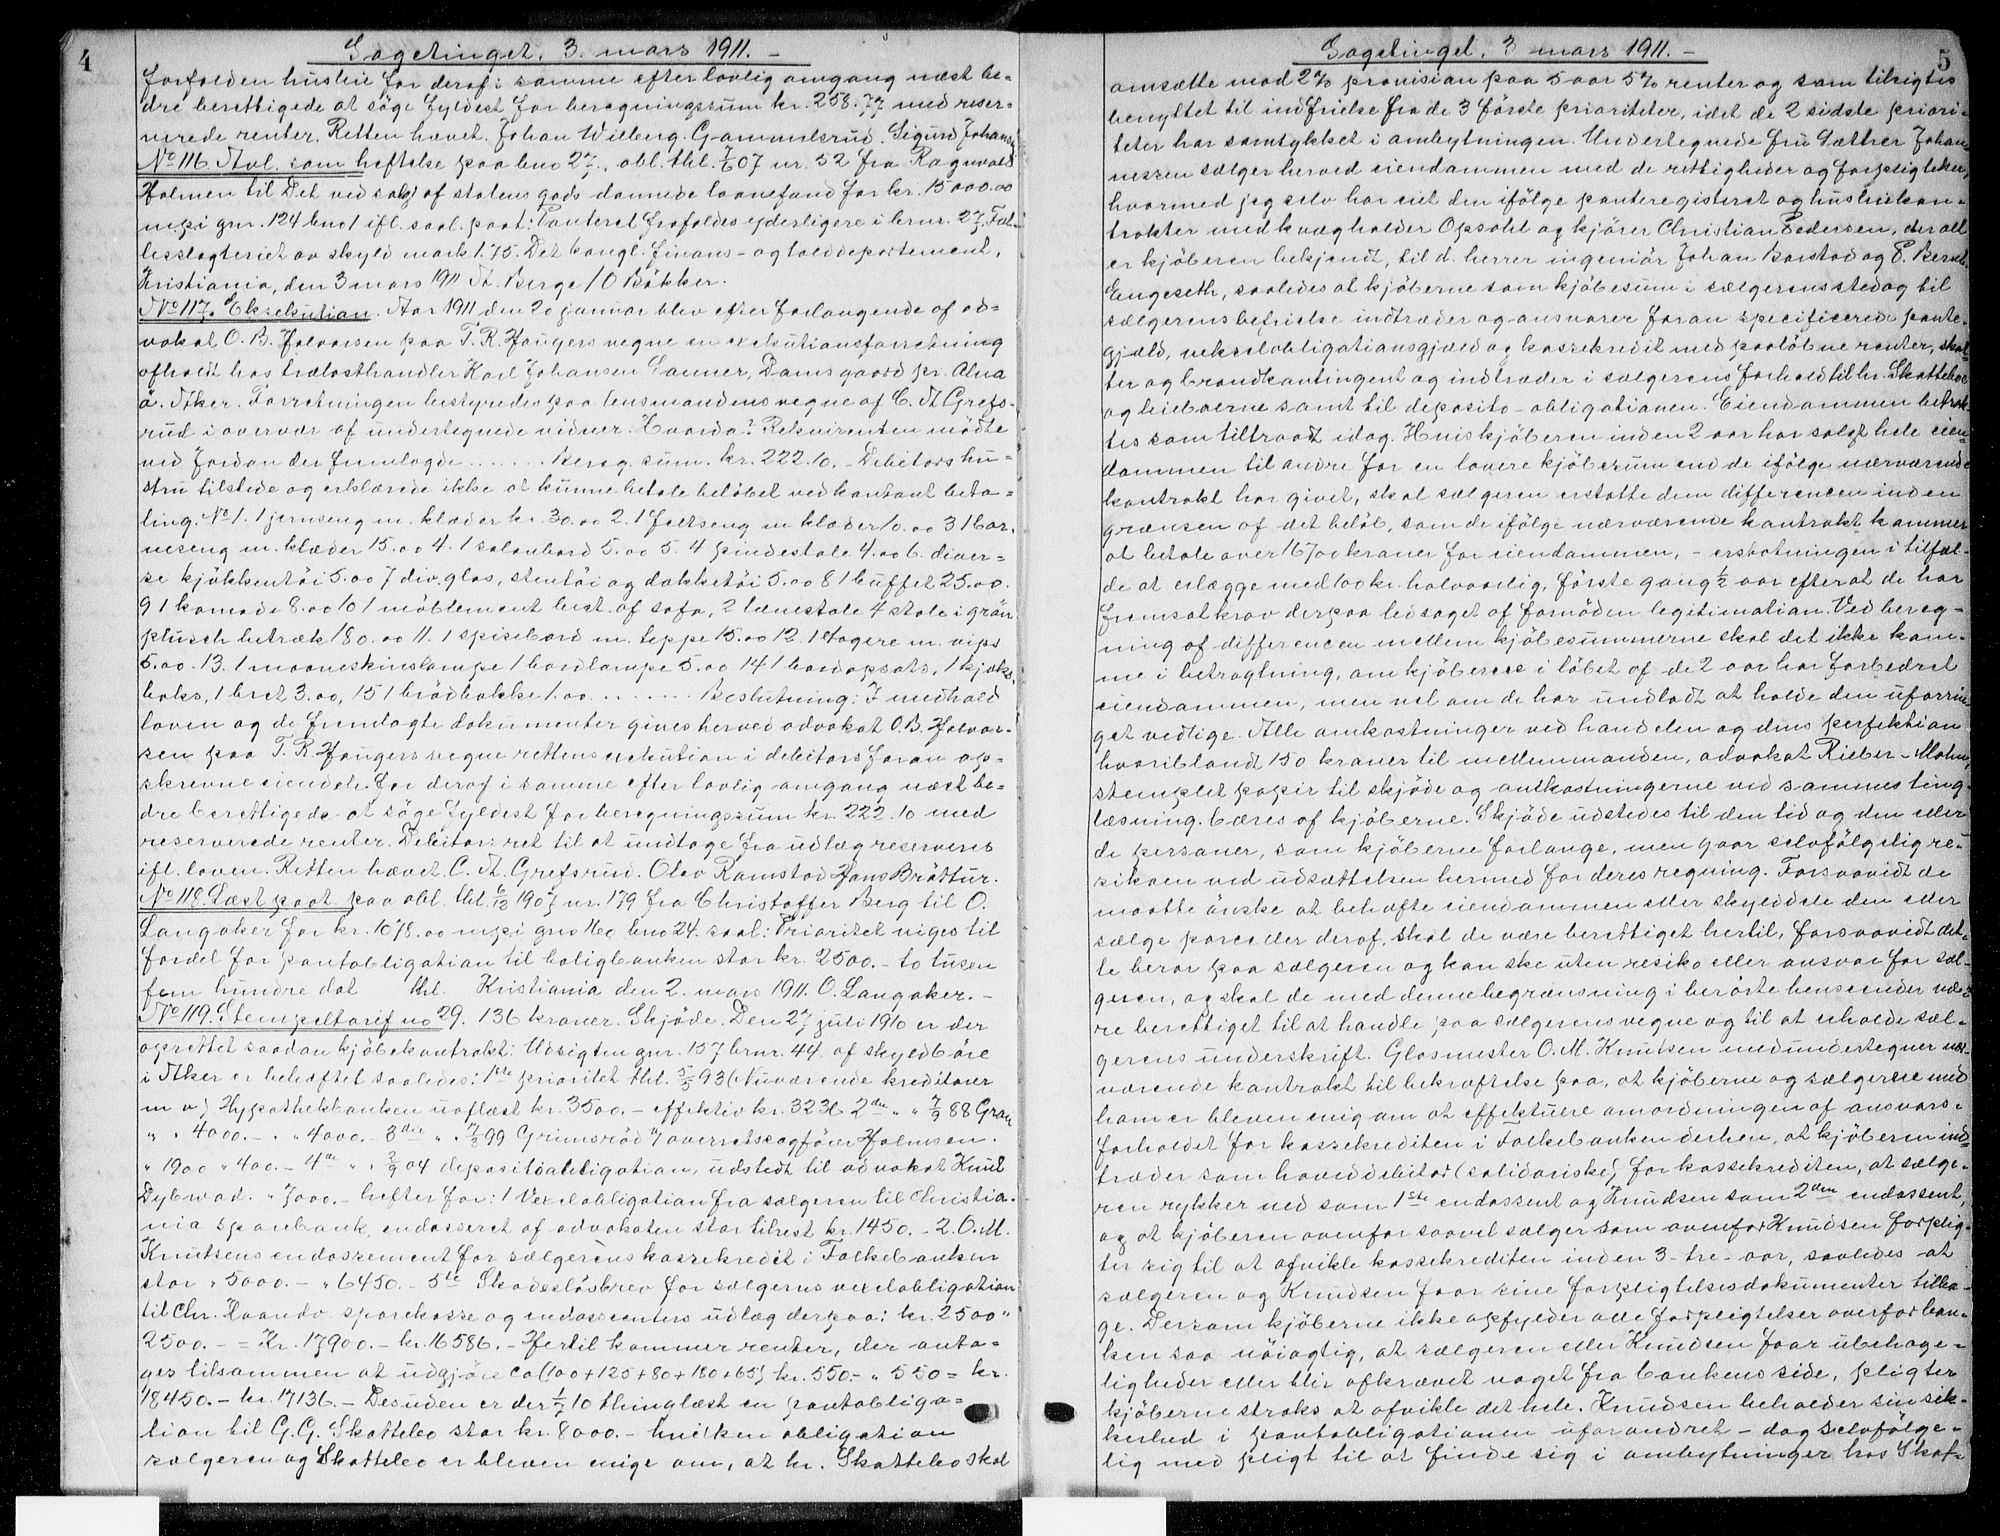 4
Sagetinget. 3. mars 1911. -
forfalden husleie for deraf i samme efter lovlig omgang næst be-
dre berettigede at søge fyldest for beregningssum kr. 258.77 med reser-
verede renter. Retten hævet. Johan Wilberg. Gammelsrud. Sigurd Johans
No 116 Avl. som heftelse paa bno 27, obl. thl. 7/6 07 nr. 52 fra Ragnvald
Holmen til Det ved salg af statens gods dannede laanefond for kr. 15000.00
mpi gnr. 124 bno 1 ifl. saal. paat: Panteret frafaldes yderligere i brnr. 27, Fæl-
lesslagteriet av skyld mark 1.75. Det kongl. finans- og tolddepartement,
Kristiania, den 3 mars 1911 A. Berge / O Bökker.
No 117. Eksekution. Aar 1911 den 20 januar blev efter forlangende af ad-
vokat O. B. Halvorsen paa T. R. Haugers vegne en exekutionsforretning
afholdt hos trælasthandler Karl Johansen Sanner, Damsgaard pr. Alna
ö. Aker. Forretningen bestyredes paa lensmandens vegne af C. A Grefs-
rud i overvær af undertegnede vidner. Hvorda? Rekvirenten mødte
ved Jordan der fremlagde ....... Bereg. sum. kr. 222.10. - Debitors hu-
stru tilstede og erklærede ikke at kunne betale beløbet ved kontant beta-
ling. No 1. 1 jernseng m. klæder kr. 30.00 2. 1 feltseng m klæder 10.00 3 1 bar-
neseng m. klæder 15.00 4. 1 salonbord 5.00 5. 4 pindestole 4.00 6. diver-
se kjökkentöi 5.00 7 div. glas, stentöi og dækketöi 5.00 8 1 buffet 25.00.
9 1 komode 8.00 10 1 möblement best. af sofa, 2 lænestole 4 stole i grön
plusch betræk 180.00 11. 1 spisebord m. teppe 15.00 12. 1 etagere m. nips
5.00. 13. 1 maaneskinslampe 1 bordlampe 5.00 14 1 bordopsats, 1 kjæks-
boks, 1 bret 3.00, 15 1 brödbakke 1.00 ........ Beslutning: I medhold
loven og de fremlagte dokumenter gives herved advokat O. B. Halvor-
sen paa T. R Haugers vegne rettens exekution i debitors foran op-
skrevne eiendele for deraf i samme efter lovlig omgang næst be-
dre berettigede at söge fyldest for beregningssum kr. 222.10 med
reserverede renter. Debitors ret til at undtage fra udlæg reserveres
ifl. loven. Retten hævet C. A. Grefsrud. Olav Ramstad Hans Bröttur.
No 118. Læst paat. paa obl. thl. 6/12 1907 nr. 179 fra Christoffer Berg til O.
Langaker for kr. 1078.00 mpi gno 160 bno 24. saal: Prioritet viges til
fordel for pantobligation til boligbanken stor kr. 2500.- to tusen
fem hundre dat thl. Kristiania den 2. mars 1911. O. Langaker. -
No 119. Stempeltarif no 29. 136 kroner. Skjöde. Den 27 juli 1910 er der
oprettet saadan kjöbekontrakt: Udsigten gnr. 157 brnr. 44. af skyld 6 öre
i Aker er behæftet saaledes: 1ste prioritet thl. 5/5 93 (Nuværende kreditorer
m v) Hypothekbanken uaflæst kr. 3500.- effektiv kr. 3236 2den " " 7/9 88 Gran
" " 4000.- " 4000.- 3die " " 7/2 99 Grimsröd ved overretssagförer Holmsen.
" 1900 " 400.- 4de " " 2/9 04 depositoobligation, udstedt til advokat Knut
Dybwad. " 7000.- hefter for: 1 Vexelobligation fra sælgeren til Christia-
nia sparebank, endosseret af advokaten stor tilrest kr. 1450.- 2. O. M.
Knutsens endossement for sælgerens kassekredit i Folkebanken
stor " 5000.- " 6450.- 5te Skadeslösbrev for sælgerens vexelobligation
til Chr. Haandv. sparekasse og endossenters udlæg derpaa: kr. 2500 "
2500.- = Kr. 17900.- kr. 16586.- Hertil kommer renter, der anta-
ges tilsammen at udgjöre ca (100 + 125 + 80 + 180 + 65) kr. 550.- " 550 = kr.
18450.- kr. 17136.- Desuden er der 1/7 10 thinglæst en pantobliga-
tion til G. G. Skattebo stor kr. 8000.- hvilken obligation
sælgeren og Skattebo er bleven enige om, at hr. Skattebo skal
5
Sagetinget. 3 mars 1911. -
omsætte mod 2% provision paa 5 aar 5% renter og som tilsigtes
benyttet til indfrielse fra de 3 förste prioriteter, idet de 2 sidste priori-
teter har samtykket i ombytningen. Undertegnede fru Sæther Johan-
nessen sælger herved eiendommen med de rettigheder og forpligtelser,
hvormed jeg selv har eiet den ifölge panteregisteret og husleiekon-
trakter med kvægholder Opsahl og kjörer Christian Pedersen, der alt
er kjöberen bekjendt, til d. herrer ingeniör Johan Barstad og P. Bernt
Engeseth, saaledes at kjöberne som kjöbesum i sælgerens sted og til
sælgerens befrielse indtræder og ansvarer foran specificerede pante-
gjæld, vekselobligationsgjæld og kassekredit med paalöbne renter, skat-
ter og brandkontingent og indtræder i sælgerens forhold til hr. Skattebo
og leieboerne samt til deposito-obligationen. Eiendommen betrak-
tes som tiltraadt idag. Hvis kjöberen inden 2 aar har solgt hele eien-
dommen til andre for en lavere kjöbesum end de ifölge nærværende
kontrakt har givet, skal sælgeren erstatte dem differencen inden
grænsen af det belöb, som de ifölge nærværende kontrakt kommer
at betale over 16700 kroner for eiendommen, - erstatningen i tilfæl-
de at erlægge med 100 kr. halvaarlig, förste gang 1/2 aar efter at de har
fremsat krav derpaa ledsaget af fornöden legitimation. Ved bereg-
ning af differencen mellem kjöbesummerne skal det ikke kom-
me i betragtning, om kjöberne i löbet af de 2 aar har forbedret
eiendommen, men vel om de har undladt at holde den uforrin-
get vedlige. Alle omkostninger ved handelen og dens perfektion
hvoriblandt 150 kroner til mellemmanden, advokat Rieber-Mohn,
stemplet papir til skjöde og omkostningerne ved sammes ting-
læsning bæres af kjöberne. Skjöde udstedes til den tid og den eller
de personer, som kjöberne forlange, men gaar selvfölgelig re-
sikoen ved udsættelsen hermed for deres regning. Forsaavidt de
maatte önske at behæfte eiendommen eller skylddele den eller
sælge parceller deraf, skal de være berettiget hertil, forsaavidt det-
te beror paa sælgeren og kan ske uten resiko eller ansvar for sæl-
geren, og skal de med denne begrænsning i berörte henseender væ-
re berettiget til at handle paa sælgerens vegne og til at erholde sæl-
gerens underskrift. Glasmester O. M. Knutsen medundertegner nær-
værende kontrakt til bekræftelse paa, at kjöberne og sælgerne med
ham er bleven enig om at effektuere omordningen af ansvars-
forholdet for kassekrediten i Folkebanken derhen, at kjöberen ind-
træder som hoveddebitor (solidariske) for kassekrediten, at sælge-
ren rykker ned som 1ste endossent og Knudsen som 2den endossent,
og at kjöberen ovenfor saavel sælger som ovenfor Knudsen forplig-
ter sig til at afvikle kassekrediten inden 3 - tre - aar, saaledes at
sælgeren og Knudsen faar sine forpligtelsesdokumenter tilba-
ge. Dersom kjöberne ikke opfylder alle forpligtelser overfor ban-
ken saa nöiagtig, at sælgeren eller Knudsen faar ubehage-
ligheder eller blir afkrævet noget fra bankens side, pligter
kjöberne straks at afvikle det hele. Knudsen beholder sin sik-
kerhed i pantobligationen uforandret - dog selvfölge-
lig med pligt til at finde sig i ombytninger hos Skat-